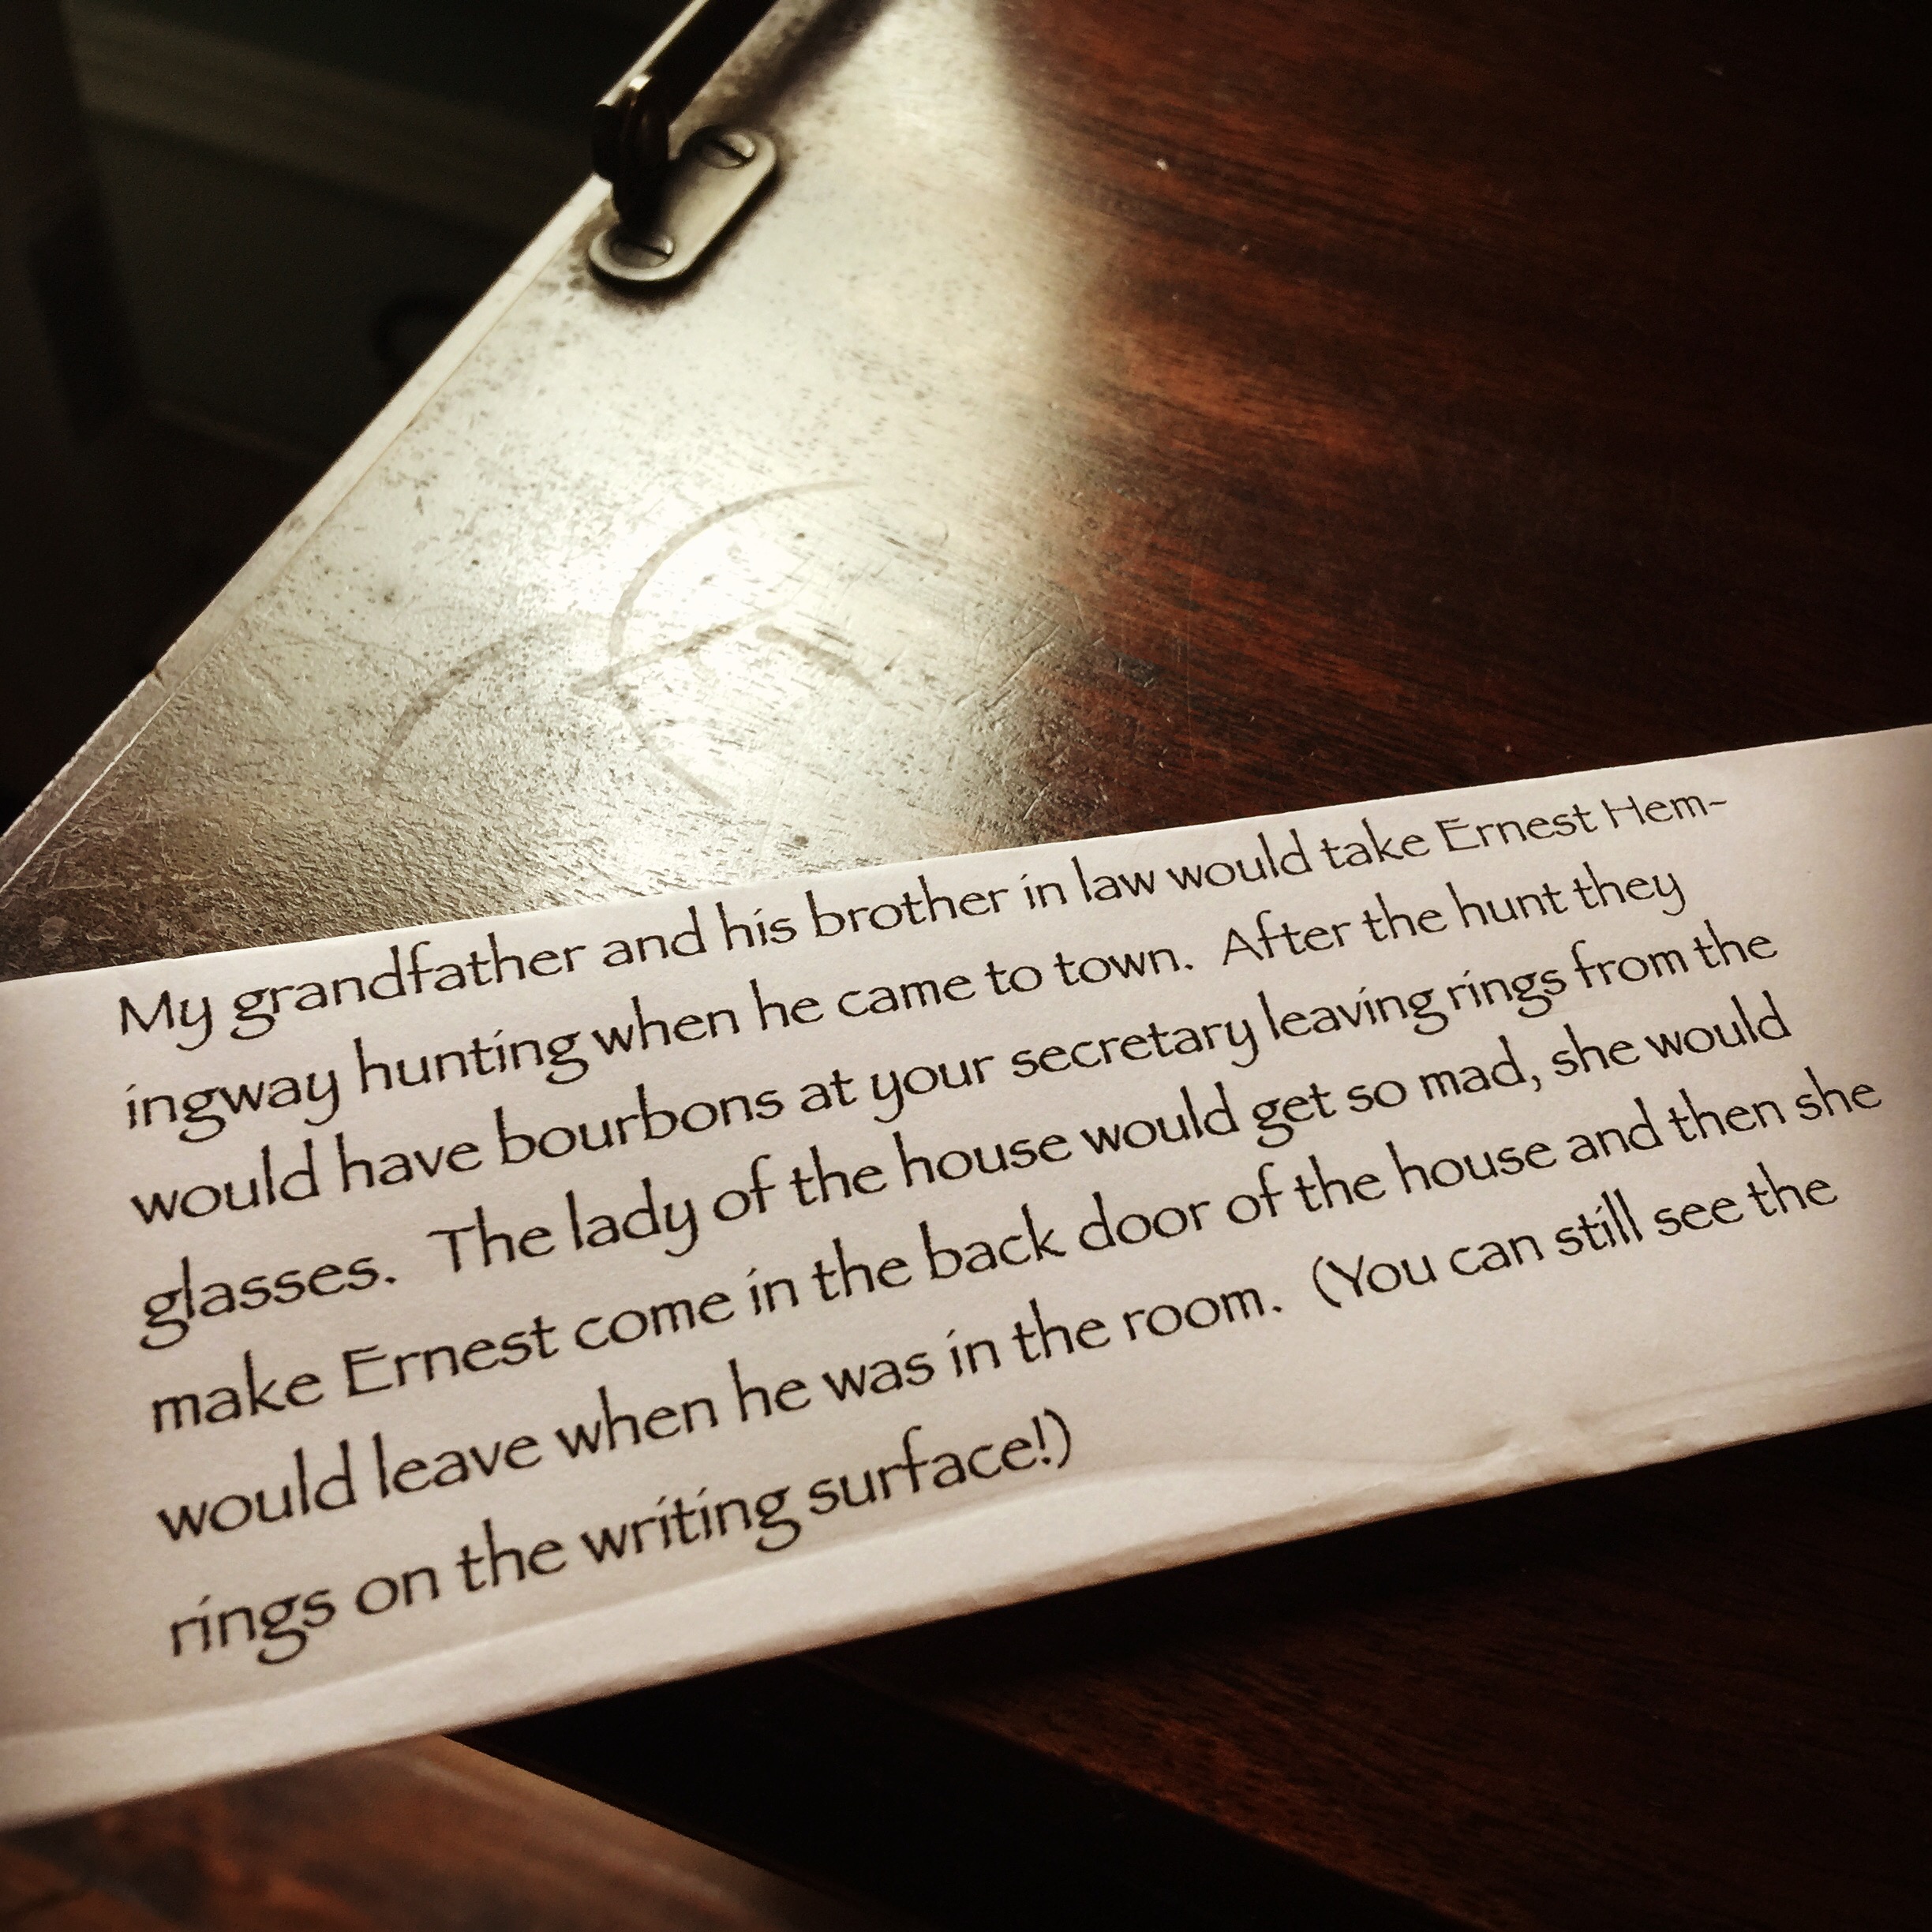 My grandfather and his brother in law would take Ernest Hem-
ingway hunting when he came to town. After the hunt they
would have bourbons at your secretary leaving rings from the
glasses. The lady of the house would get so mad, she would
make Ernest come in the back door of the house and then she
would leave when he was in the room. (You can still see the
rings on the writing surface!)